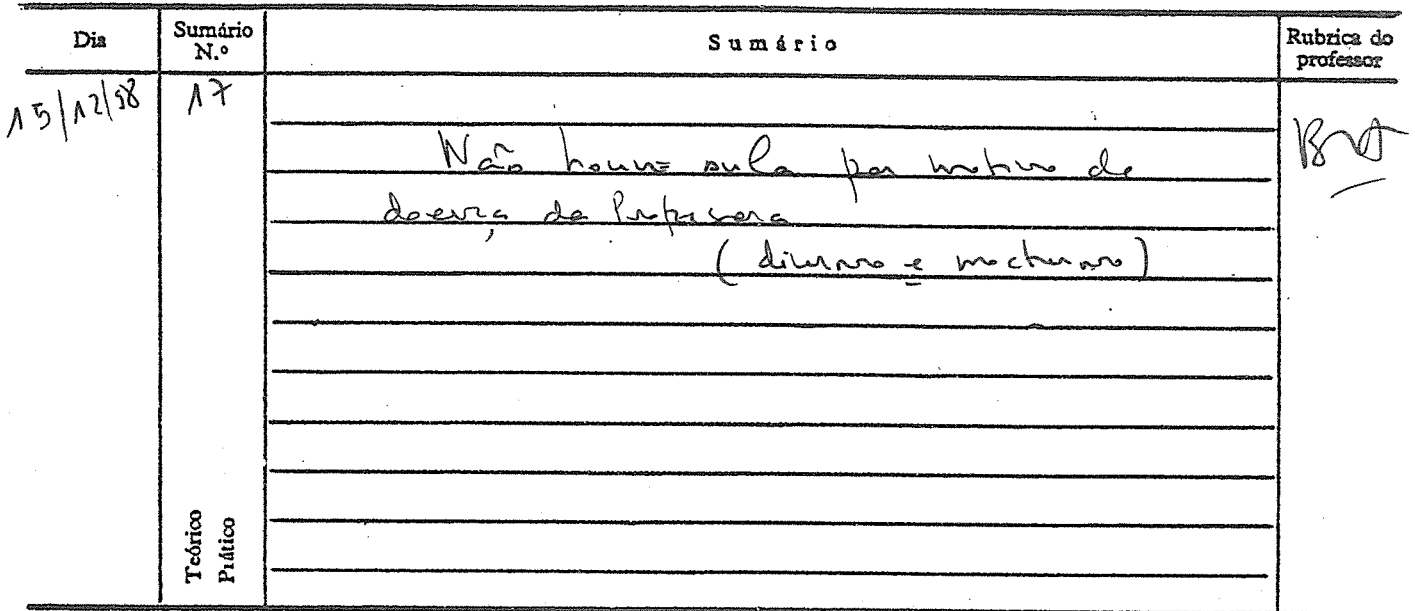 Dia
Sumário
N.º
Sumário
Rubrica do
professor
15/12/98
17
Não houve aula por motivo de
doença da Professora
(diurno e nocturno)
Teórico
Prático